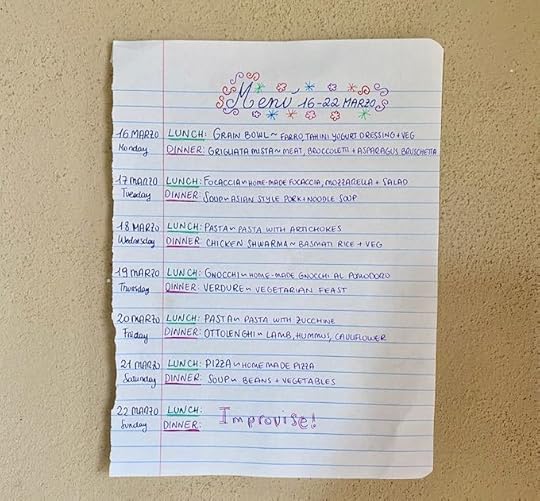 Menú 16-22 MARZO
16 MARZO LUNCH: GRAIN BOWL~ FARRO, TAHINI YOGURT DRESSING + VEG
Monday DINNER: GRIGLIATA MISTA~ MEAT, BROCCOLETTI + ASPARAGUS BRUSCHETTA
17 MARZO LUNCH: FOCACCIA~ HOME-MADE FOCACCIA, MOZZARELLA + SALAD
Tuesday DINNER: SOUP~ ASIAN STYLE PORK + NOODLE SOUP
18 MARZO LUNCH: PASTA~ PASTA WITH ARTICHOKES
Wednesday DINNER: CHICKEN SHWARMA~ BASMATI RICE + VEG
19 MARZO LUNCH: GNOCCHI~ HOME-MADE GNOCCHI AL POMODORO
Thursday DINNER: VERDURE~ VEGETARIAN FEAST
20 MARZO LUNCH: PASTA~ PASTA WITH ZUCCHINE
Friday DINNER: OTTOLENGHI~ LAMB, HUMMUS, CAULIFLOWER
21 MARZO LUNCH: PIZZA~ HOMEMADE PIZZA
Saturday DINNER: SOUP~ BEANS + VEGETABLES
22 MARZO LUNCH: Improvise!
Sunday DINNER: